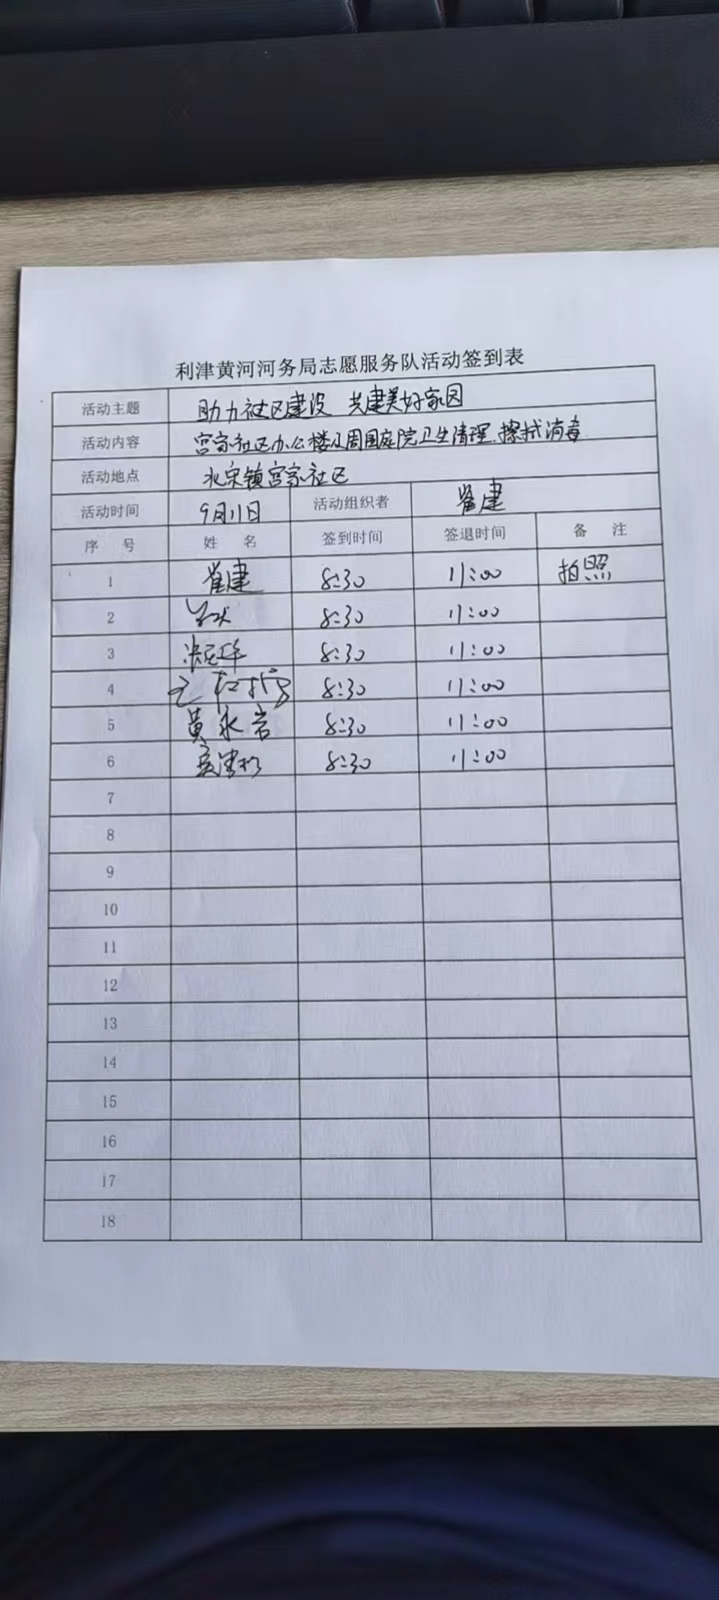 利津黄河河务局志愿服务队活动签到表
活动主题 助力社区建设 共建美好家园
活动内容 宫家社区办公楼及周围庭院卫生清理、擦拭消毒
活动地点 北宋镇宫家社区
活动时间 9月11日 活动组织者 崔建
序 号 姓 名 签到时间 签退时间 备 注
1 崔建 8:30 11:00 拍照
2 8:30 11:00
3 8:30 11:00
4 8:30 11:00
5 黄永岩 8:30 11:00
6 8:30 11:00
7
8
9
10
11
12
13
14
15
16
17
18